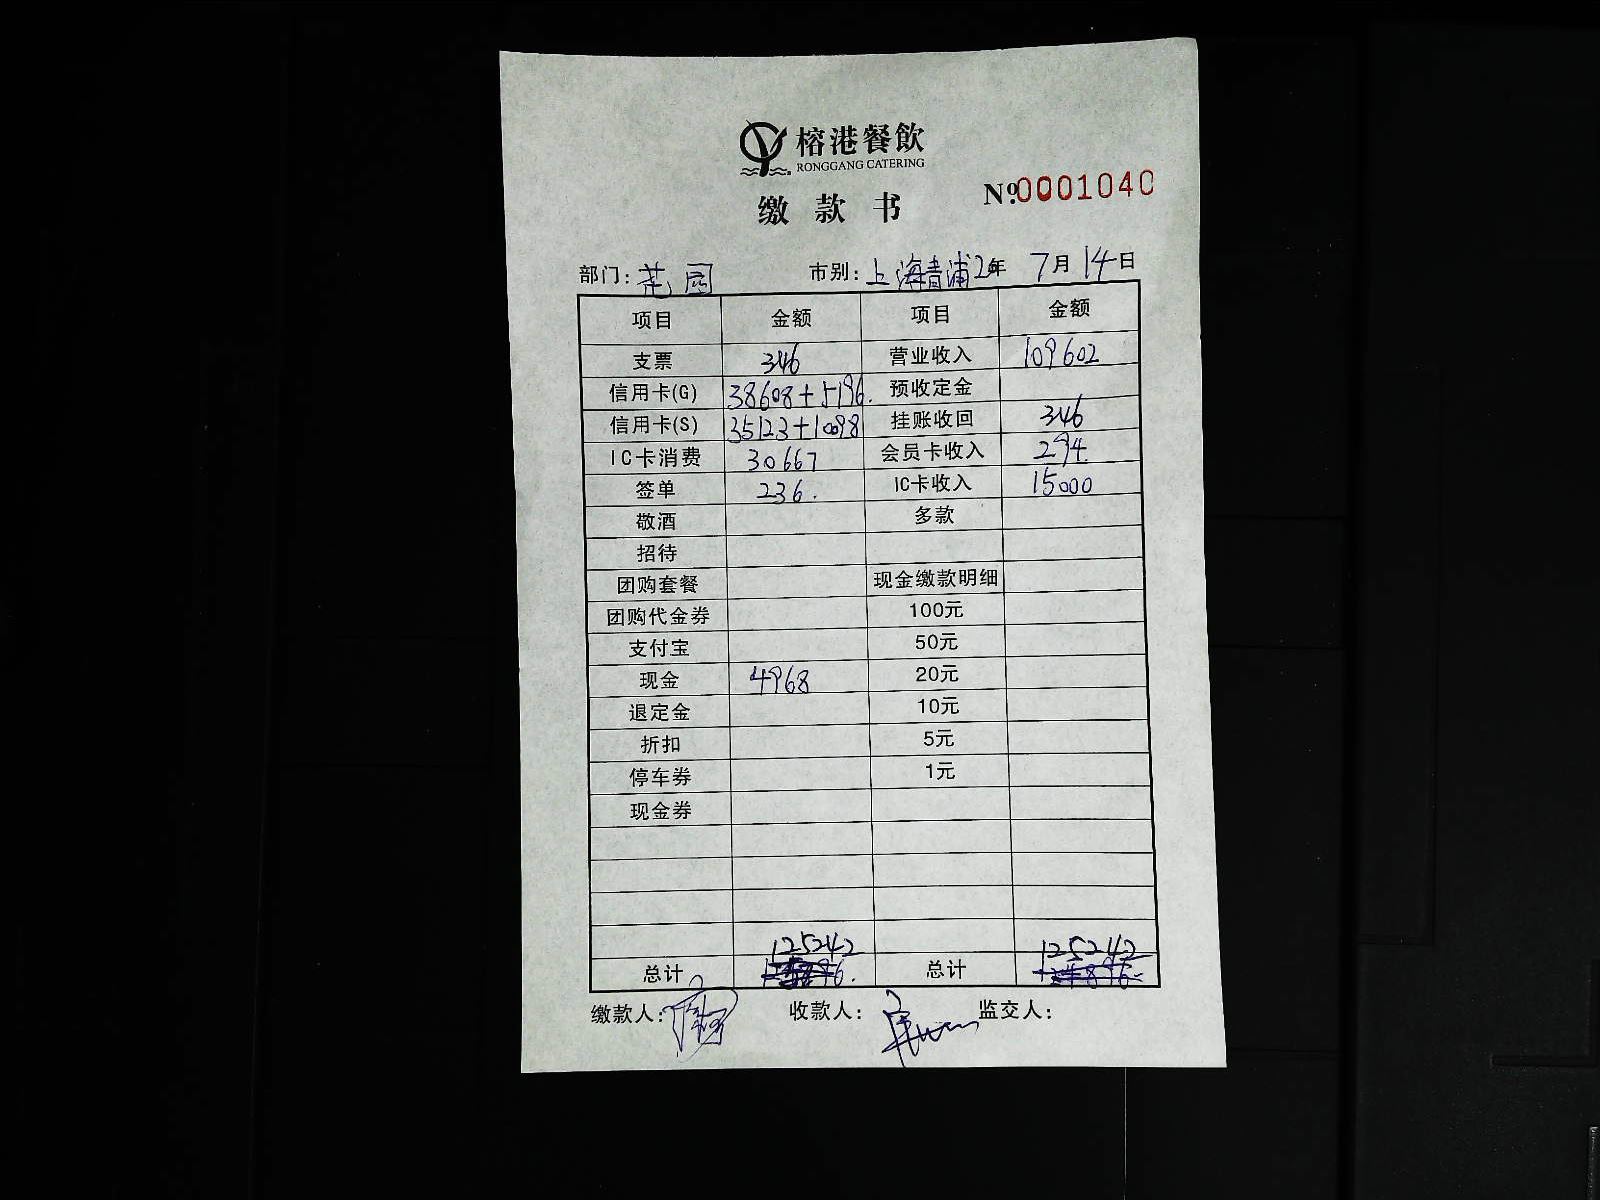 榕港餐飲
RONGGANG CATERING
缴款书
№0001040
部门：花园 市别：上海青浦 20年 7月 14日
项目 金额 项目 金额
支票 346 营业收入 109602
信用卡(G) 38608+5196. 预收定金
信用卡(S) 35123+10098 挂账收回 346
IC卡消费 30667 会员卡收入 294.
签单 236. IC卡收入 15000
敬酒 多款
招待
团购套餐 现金缴款明细
团购代金券 100元
支付宝 50元
现金 4968 20元
退定金 10元
折扣 5元
停车券 1元
现金券
125242 125242
总计 总计
缴款人： 收款人： 监交人：